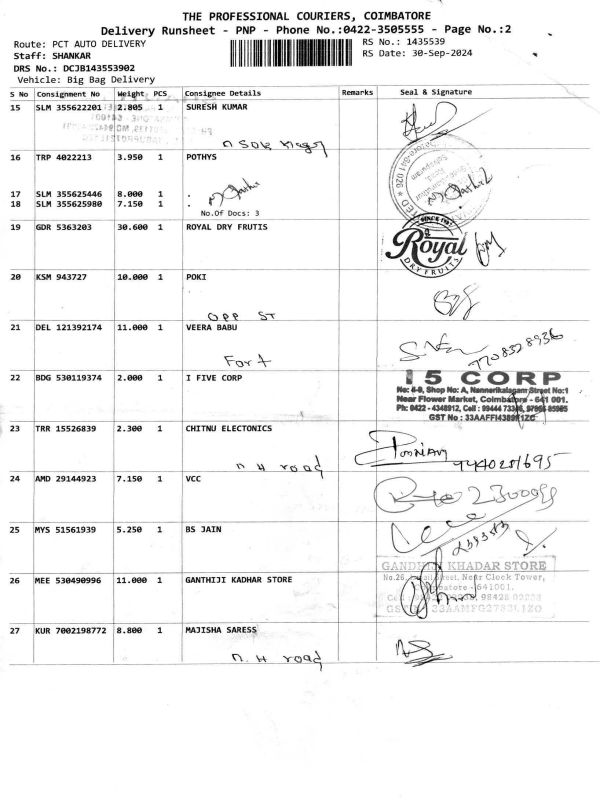 THE PROFESSIONAL COURIERS, COIMBATORE
Delivery Runsheet - PNP - Phone No.:0422-3505555 - Page No.:2
Route: PCT AUTO DELIVERY
RS No.: 1435539
Staff: SHANKAR
RS Date: 30-Sep-2024
DRS No.: DCJB143553902
Vehicle: Big Bag Delivery
S No Consignment No Weight PCS Consignee Details Remarks Seal & Signature
15 SLM 355622201 2.805 1 SURESH KUMAR
16 TRP 4022213 3.950 1 POTHYS
17 SLM 355625446 8.000 1 .
18 SLM 355625980 7.150 1 .
No.Of Docs: 3
19 GDR 5363203 30.600 1 ROYAL DRY FRUTIS
SINCE
Royal
DRY FRUITS
20 KSM 943727 10.000 1 POKI
OPP ST
21 DEL 121392174 11.000 1 VEERA BABU
Fort
7708328936
22 BDG 530119374 2.000 1 I FIVE CORP
I 5 CORP
No: 4-9, Shop No: A, Nannerikalagam Street No:1
Near Flower Market, Coimbatore - 641 001.
Ph: 0422 - 4348912, Cell : 99444
23 TRR 15526839 2.300 1 CHITNU ELECTONICS
n H road
24 AMD 29144923 7.150 1 VCC
25 MYS 51561939 5.250 1 BS JAIN
26 MEE 530490996 11.000 1 GANTHIJI KADHAR STORE
KHADAR STORE
No.26, Near Clock Tower,
641001.
27 KUR 7002198772 8.800 1 MAJISHA SARESS
n. H road